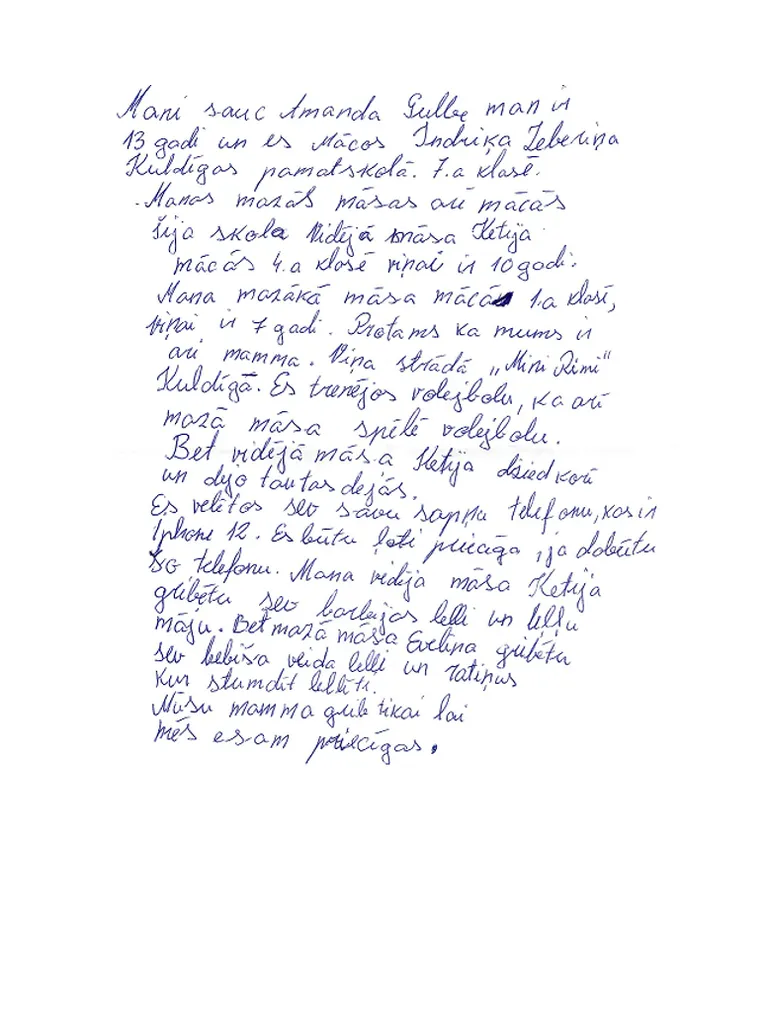 Mani sauc Amanda Gulbe man ir
13 gadi un es Mācos Indriķa Zeberiņa
Kuldīgas pamatskolā. 7.a klasē.
Manas mazās māsas arī mācās
šija skola Vidējā māsa Ketija
mācās 4.a klasē viņai ir 10 gadi.
Mana mazākā māsa mācās 1.a klasē,
viņai ir 7 gadi. Protams ka mums ir
arī mamma. Viņa strādā „Mini Rimi"
Kuldīgā. Es trenējos volejbolu, ka arī
mazā māsa spēlē volejbolu.
Bet vidējā māsa Ketija dzied korī
un dejo tautas dejās.
Es vēlētos sev savu sapņu telefonu, kas ir
Iphone 12. Es būtu ļoti priecīga, ja dabūtu
šo telefonu. Mana vidēja māsa Ketija
gribētu sev barbijas lelli un leļļu
māju. Bet mazā māsa Evelīna gribētu
sev bebiša veida lelli un ratiņus
kur stumdīt lellīti.
Mūsu mamma grib tikai lai
mēs esam priecīgas.